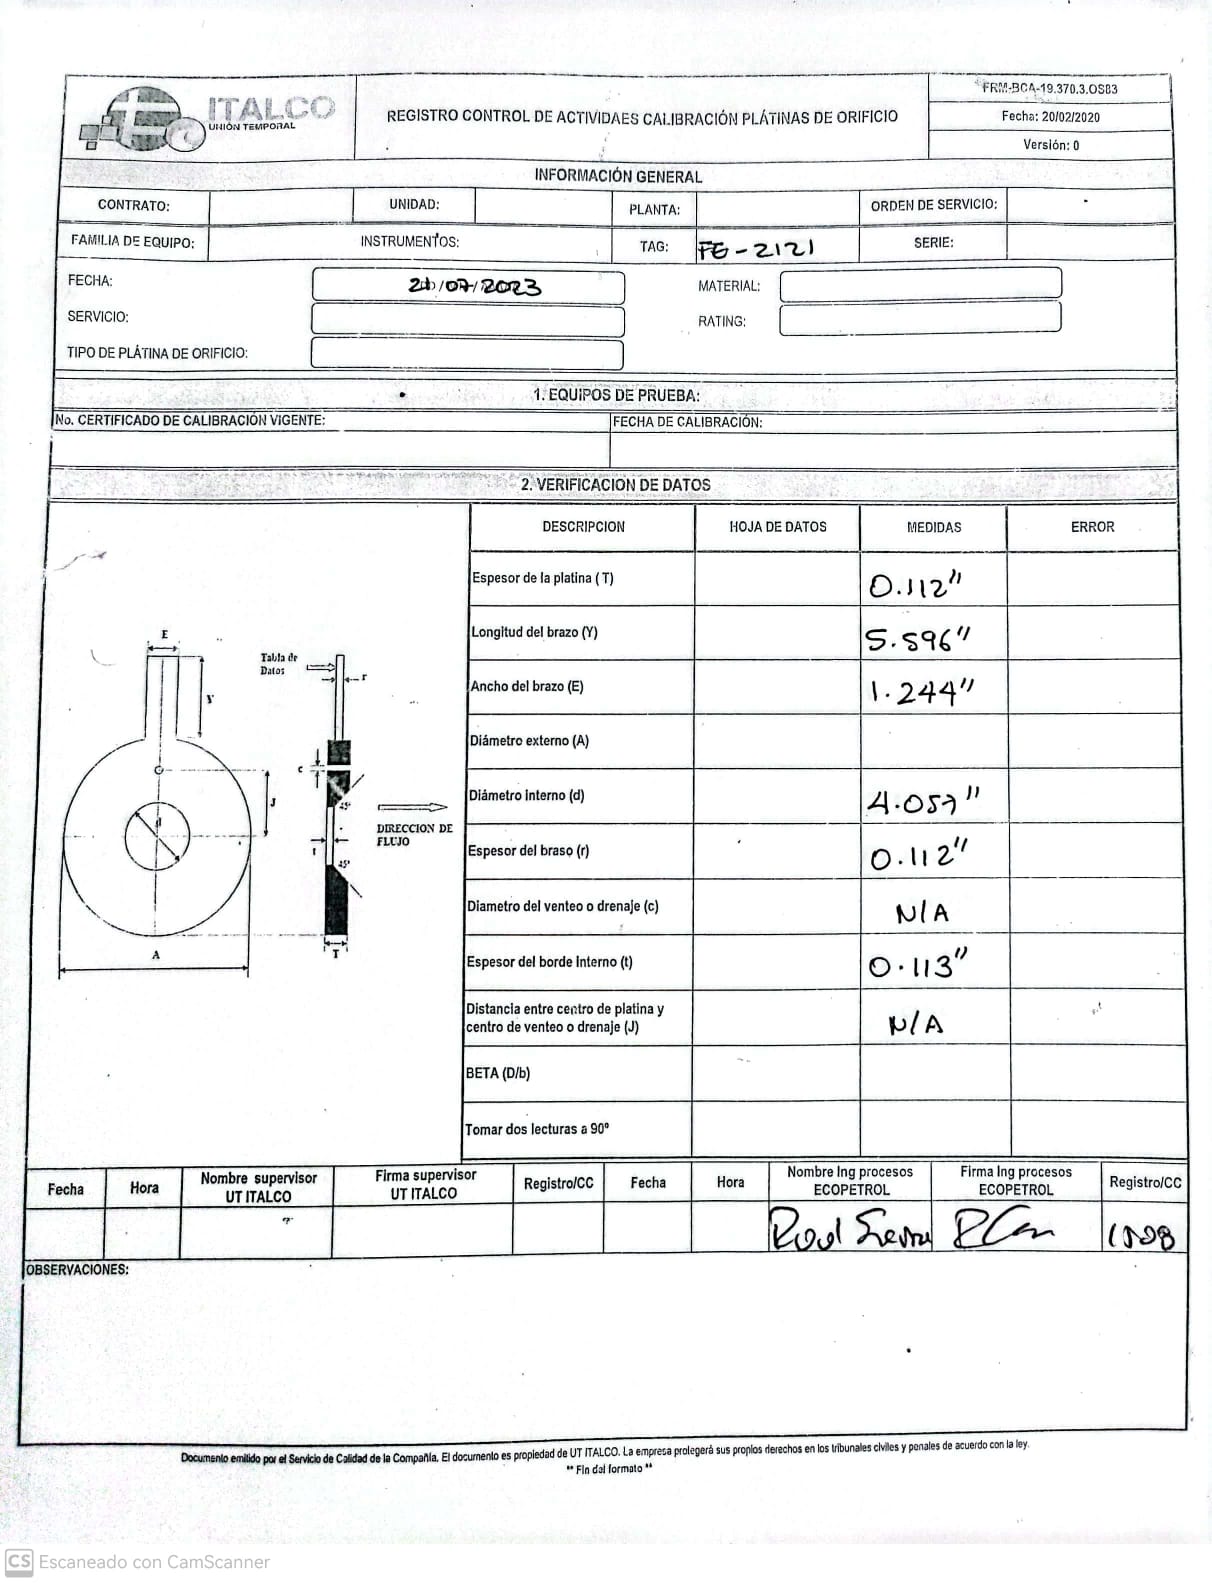 ITALCO
UNIÓN TEMPORAL
REGISTRO CONTROL DE ACTIVIDAES CALIBRACIÓN PLÁTINAS DE ORIFICIO
FRM-BCA-19.370.3.OS83
Fecha: 20/02/2020
Versión: 0
INFORMACIÓN GENERAL
CONTRATO: UNIDAD: PLANTA: ORDEN DE SERVICIO:
FAMILIA DE EQUIPO: INSTRUMENTOS: TAG: FE-2121 SERIE:
FECHA: /07/2023 MATERIAL:
SERVICIO: RATING:
TIPO DE PLÁTINA DE ORIFICIO:
1. EQUIPOS DE PRUEBA:
No. CERTIFICADO DE CALIBRACIÓN VIGENTE: FECHA DE CALIBRACIÓN:
2. VERIFICACION DE DATOS
DESCRIPCION HOJA DE DATOS MEDIDAS ERROR
Espesor de la platina ( T) 0.112"
Longitud del brazo (Y) 5.596"
Ancho del brazo (E) 1.244"
Diámetro externo (A)
Diámetro interno (d) 4.057"
Espesor del braso (r) 0.112"
Diametro del venteo o drenaje (c) N/A
Espesor del borde Interno (t) 0.113"
Distancia entre centro de platina y
centro de venteo o drenaje (J) N/A
BETA (D/b)
Tomar dos lecturas a 90º
E
Tabla de
Datos
r
Y
c
J
45°
d
DIRECCION DE
FLUJO
t
45°
A
T
Fecha Hora Nombre supervisor UT ITALCO Firma supervisor UT ITALCO Registro/CC Fecha Hora Nombre Ing procesos ECOPETROL Firma Ing procesos ECOPETROL Registro/CC
OBSERVACIONES:
Documento emitido por el Servicio de Calidad de la Compañía, El documento es propiedad de UT ITALCO. La empresa protegerá sus propios derechos en los tribunales civiles y penales de acuerdo con la ley.
** Fin del formato **
CS Escaneado con CamScanner